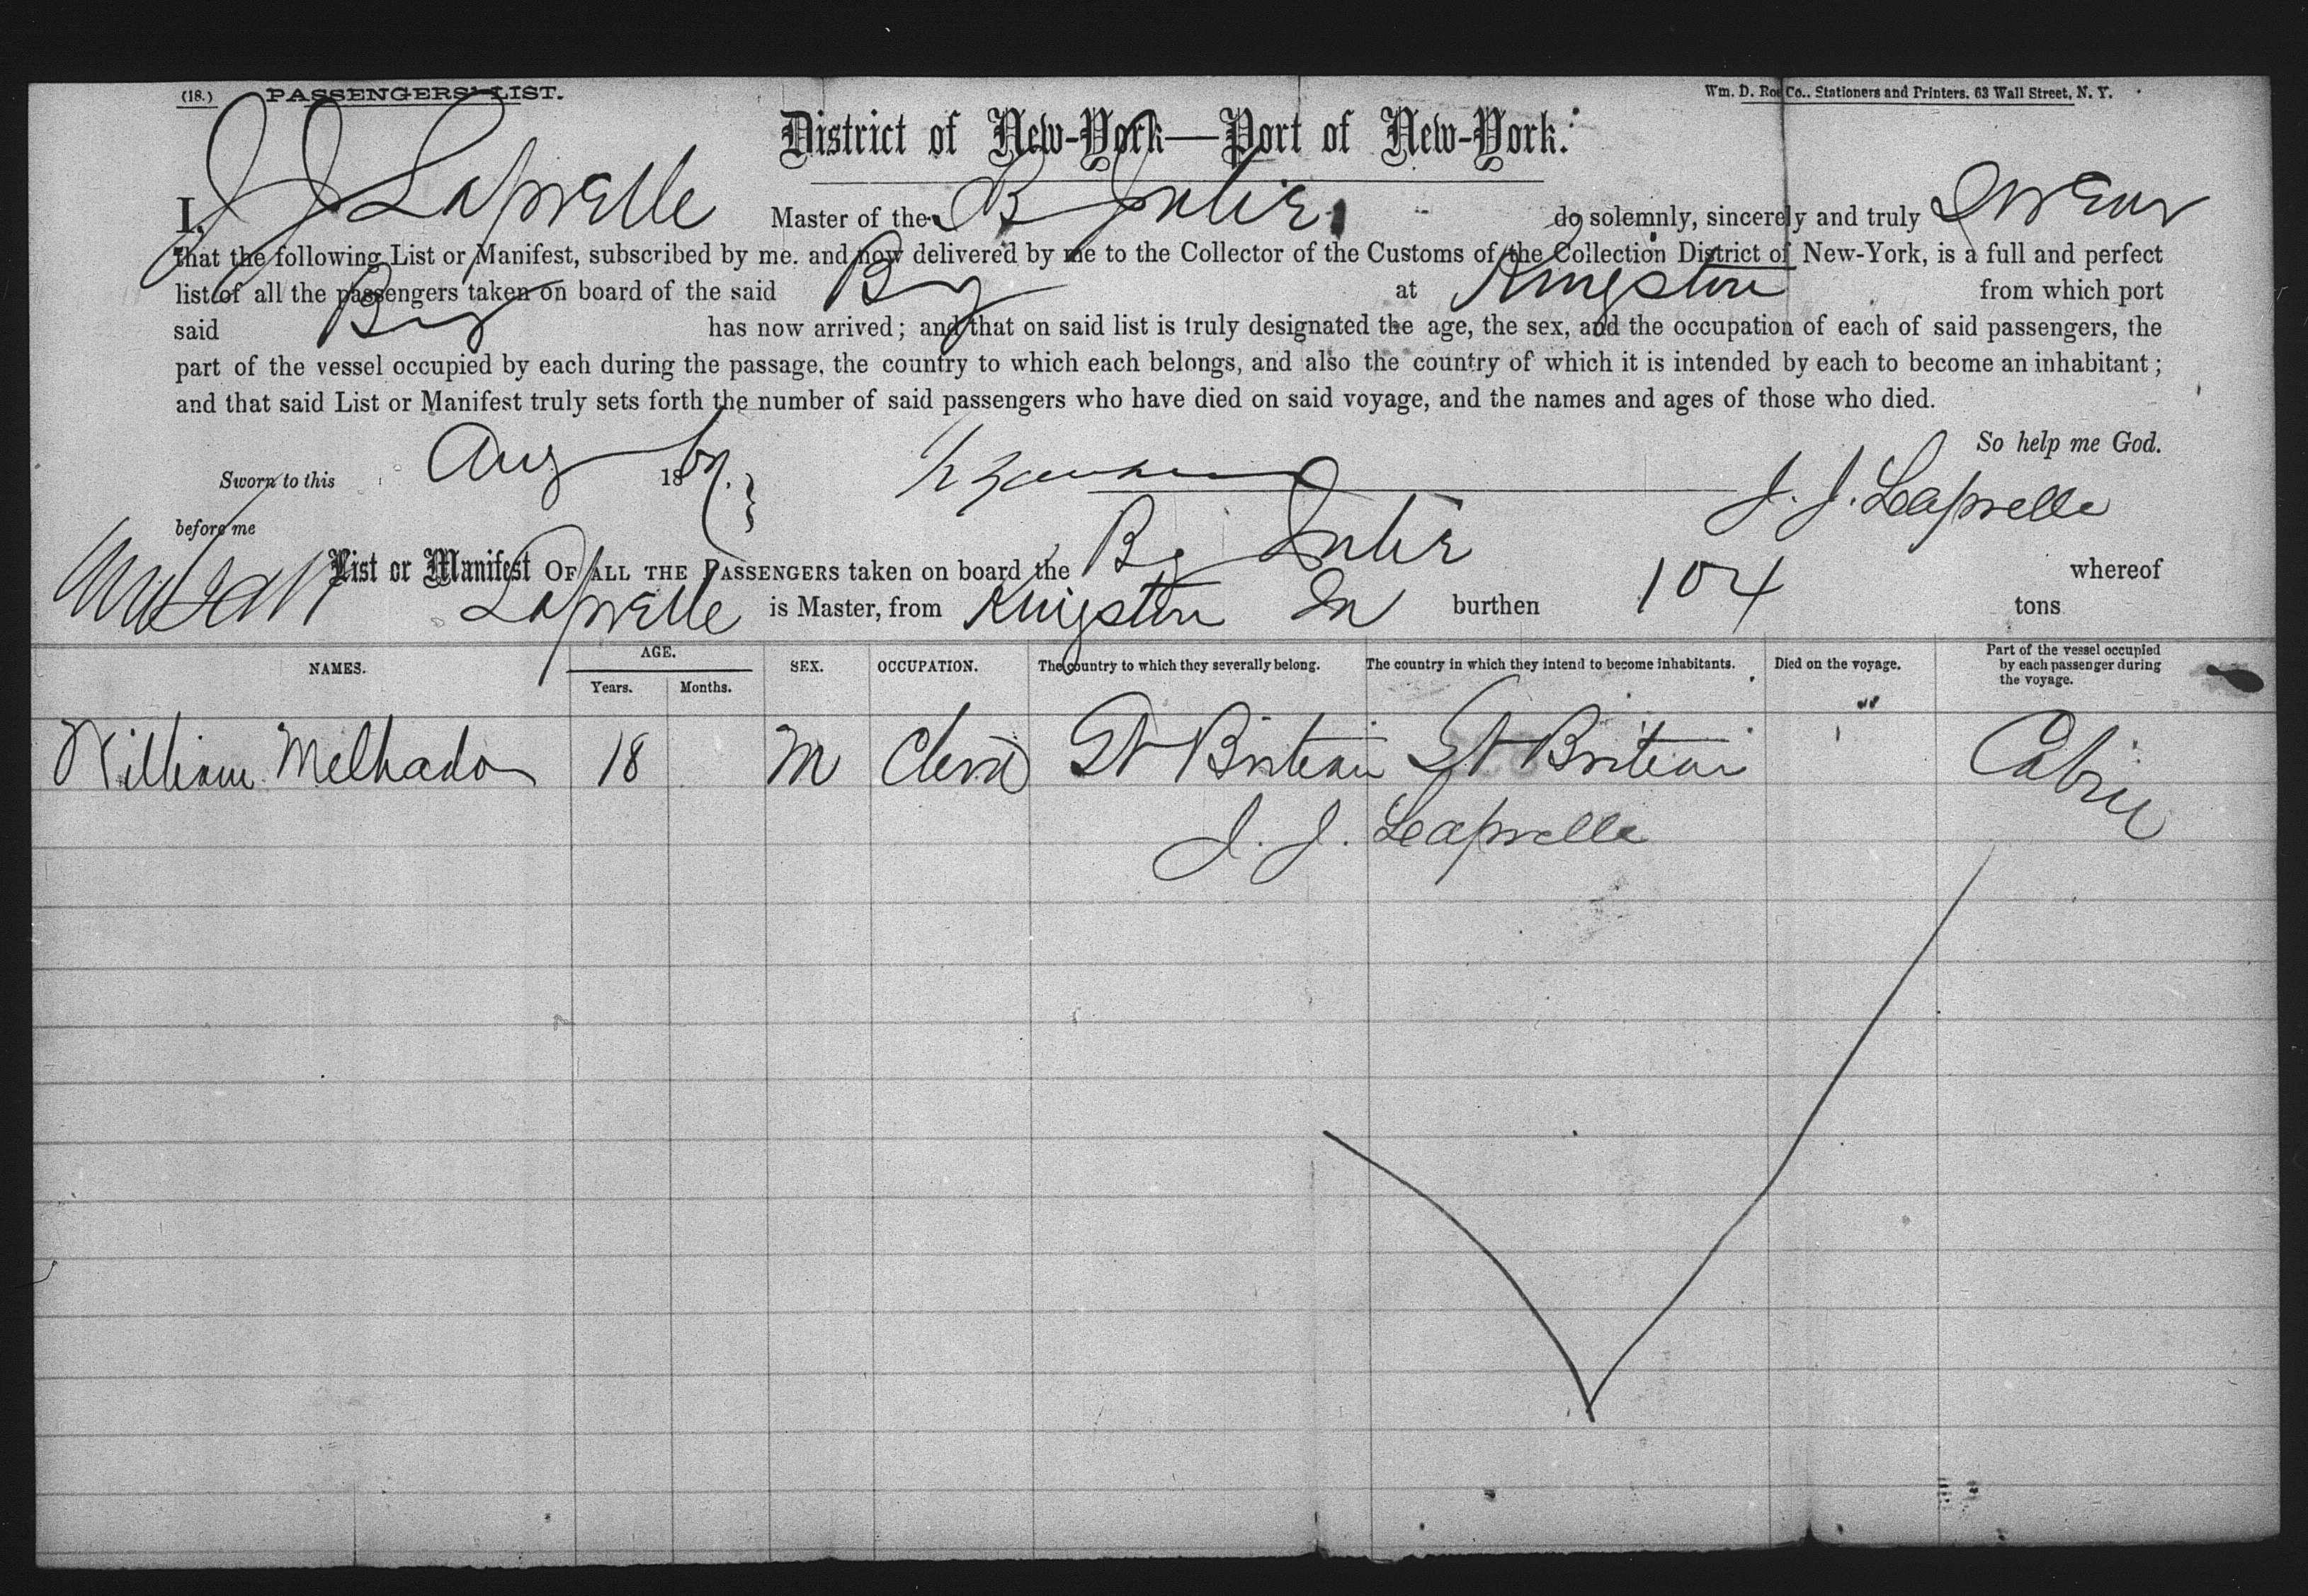 (18.) PASSENGERS' LIST. Wm. D. Roe Co.. Stationers and Printers. 63 Wall Street, N. Y.
District of New-York—Port of New-York.
I, J J Laprelle Master of the B Julie do solemnly, sincerely and truly swear
that the following List or Manifest, subscribed by me. and now delivered by me to the Collector of the Customs of the Collection District of New-York, is a full and perfect
list of all the passengers taken on board of the said Bg at Kingston from which port
said Bg has now arrived; and that on said list is truly designated the age, the sex, and the occupation of each of said passengers, the
part of the vessel occupied by each during the passage, the country to which each belongs, and also the country of which it is intended by each to become an inhabitant;
and that said List or Manifest truly sets forth the number of said passengers who have died on said voyage, and the names and ages of those who died.
So help me God.
Sworn to this Aug 18
before me J. J. Laprelle
List or Manifest OF ALL THE PASSENGERS taken on board the Bg Julie whereof
Laprelle is Master, from Kingston Ja burthen 104 tons
NAMES. AGE. SEX. OCCUPATION. The country to which they severally belong. The country in which they intend to become inhabitants. Died on the voyage. Part of the vessel occupied by each passenger during the voyage.
Years. Months.
William Melhado 18 M Clerk Gt Britain Gt Britain Cabin
J. J. Laprelle